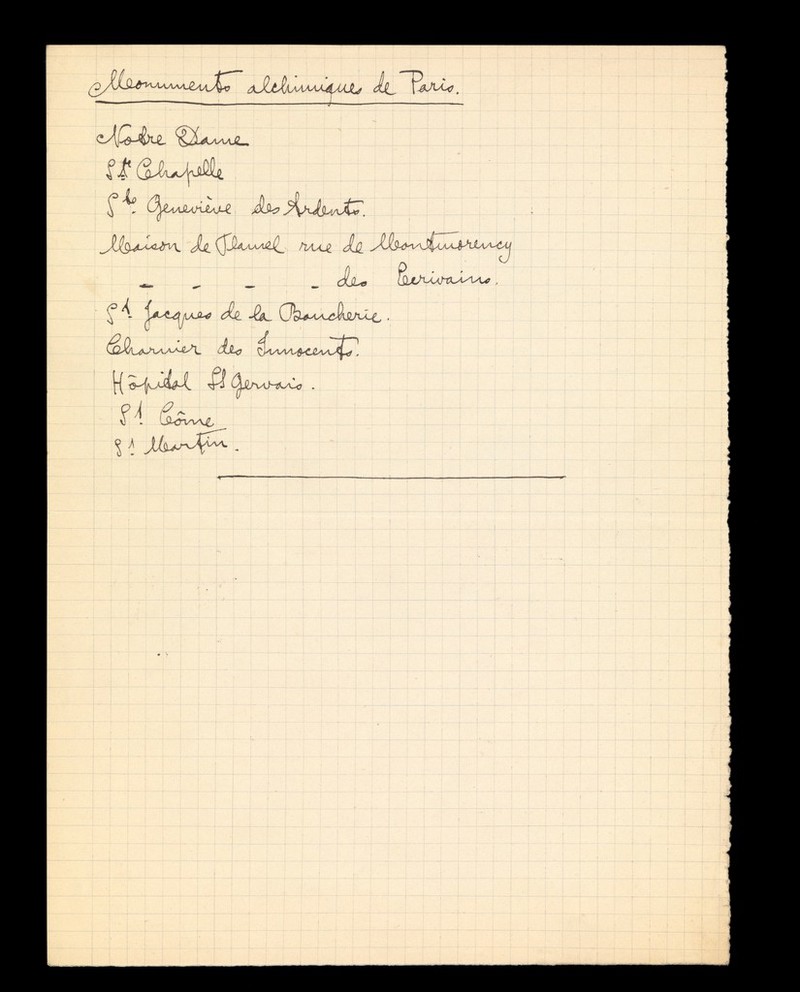 Monuments alchimiques de Paris.
Notre Dame
Ste Chapelle
Ste Geneviève des Ardents.
Maison de Flamel rue de Montmorency
- - - - des Ecrivains.
St Jacques de la Boucherie.
Charnier des Innocents.
Hôpital St Gervais.
St Côme
St Martin.